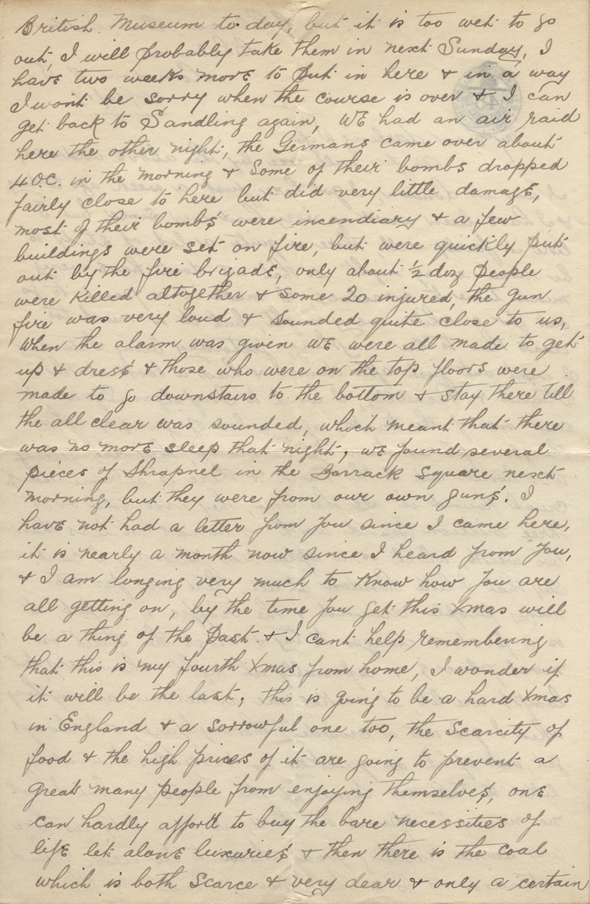 British Museum to day, but it is too wet to go
out, I will probably take them in next Sunday, I
have two weeks more to put in here & in a way
I wont be sorry when the course is over & I can
get back to Sandling again, WE had an air raid
here the other night, the Germans came over about
4 O.C. in the morning & some of their bombs dropped
fairly close to here but did very little damage,
most of their bombs were incendiary & a few
buildings were set on fire, but were quickly put
out by the fire brigade, only about ½ doz people
were killed altogether & some 20 injured, the gun
fire was very loud & sounded quite close to us,
when the alarm was given we were all made to get
up & dress & those who were on the top floors were
made to go downstairs to the bottom & stay there till
the all clear was sounded, which meant that there
was no more sleep that night, we found several
pieces of Shrapnel in the Barrack Square next
morning, but they were from our own guns. I
have not had a letter from you since I came here,
it is nearly a month now since I heard from you,
& I am longing very much to know how you are
all getting on, by the time you get this Xmas will
be a thing of the past & I cant help remembering
that this is my fourth Xmas from home, I wonder if
it will be the last, this is going to be a hard Xmas
in England & a sorrowful one too, the scarcity of
food & the high prices of it are going to prevent a
great many people from enjoying themselves, one
can hardly afford to buy the bare necessities of
life let alone luxuries & then there is the coal
which is both scarce & very dear & only a certain